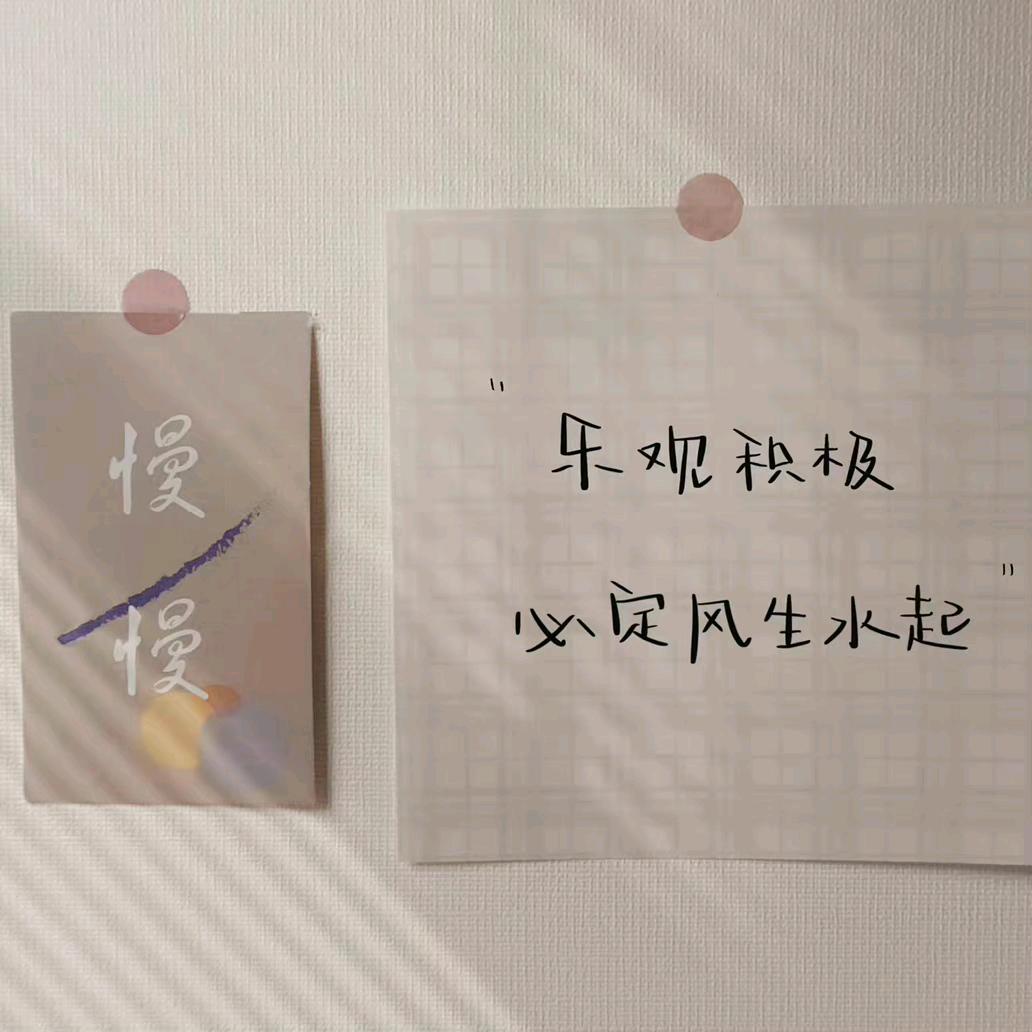 慢
慢
"乐观积极
必定风生水起"